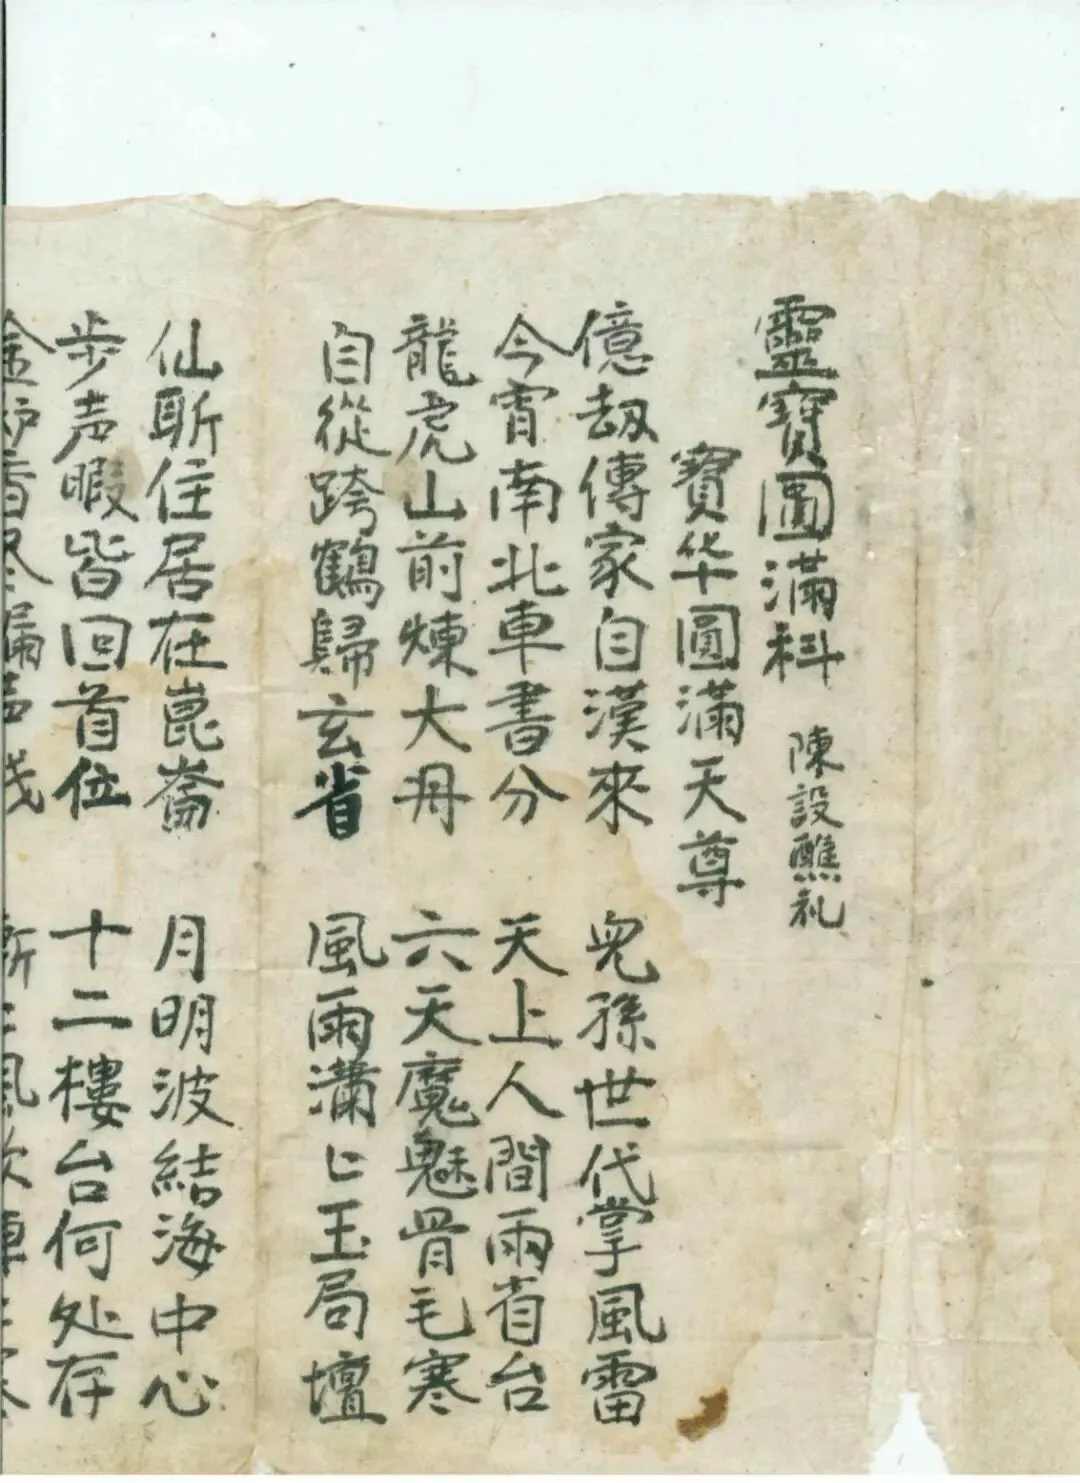 靈寶圓滿科 陳設醮礼
寳华圓滿天尊
億劫傳家自漢來 兒孫世代掌風雷
今宵南北車書分 天上人間兩省台
龍虎山前煉大丹 六天魔魅骨毛寒
自從跨鶴歸玄省 風雨瀟〻玉局壇
仙斯住居在崑崙 月明波結海中心
步声暇皆回首位 十二樓台何处存
金炉香尽漏声残